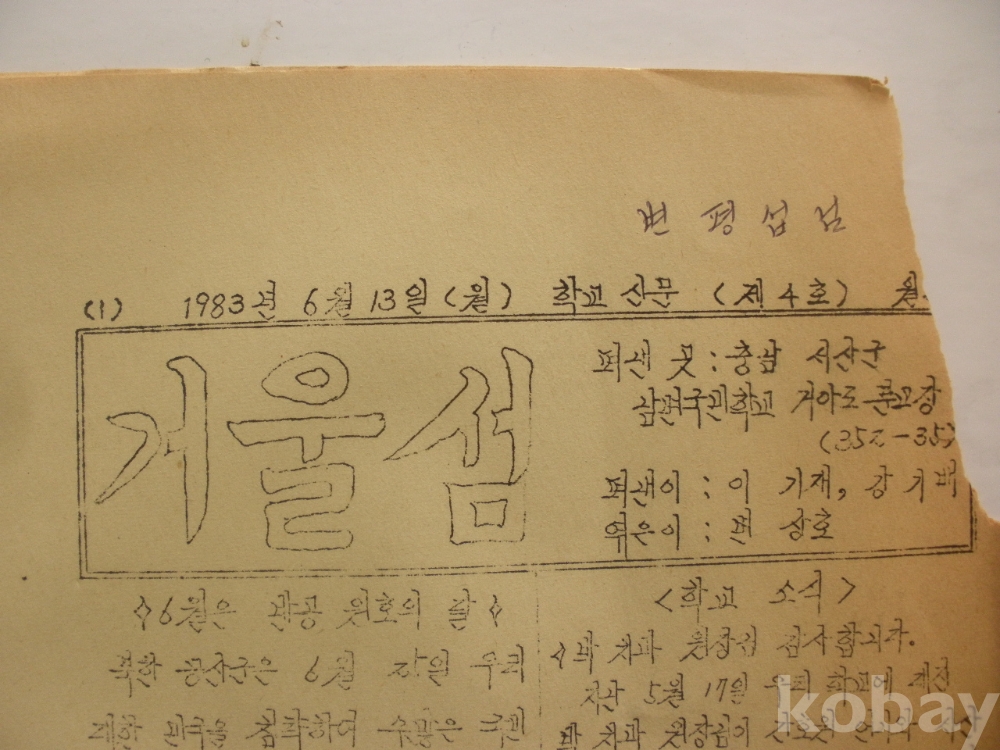 변 평 섭 님
(1) 1983년 6월 13일 (월) 학교 신문 (제 4호) 월
거울섬
펴낸 곳 : 충남 서산군
삼면국민학교 거아도 분교장
(352-35)
펴낸이 : 이 기재, 강 기
엮은이 : 변 상호
<6월은 반공 원호의 달>
북한 공산군은 6월 우리
<학교 소식>
<박 치과 원장님 감사합니다.
지난 5월 17일 우리 학교에
박 치과 원장님이
kobay